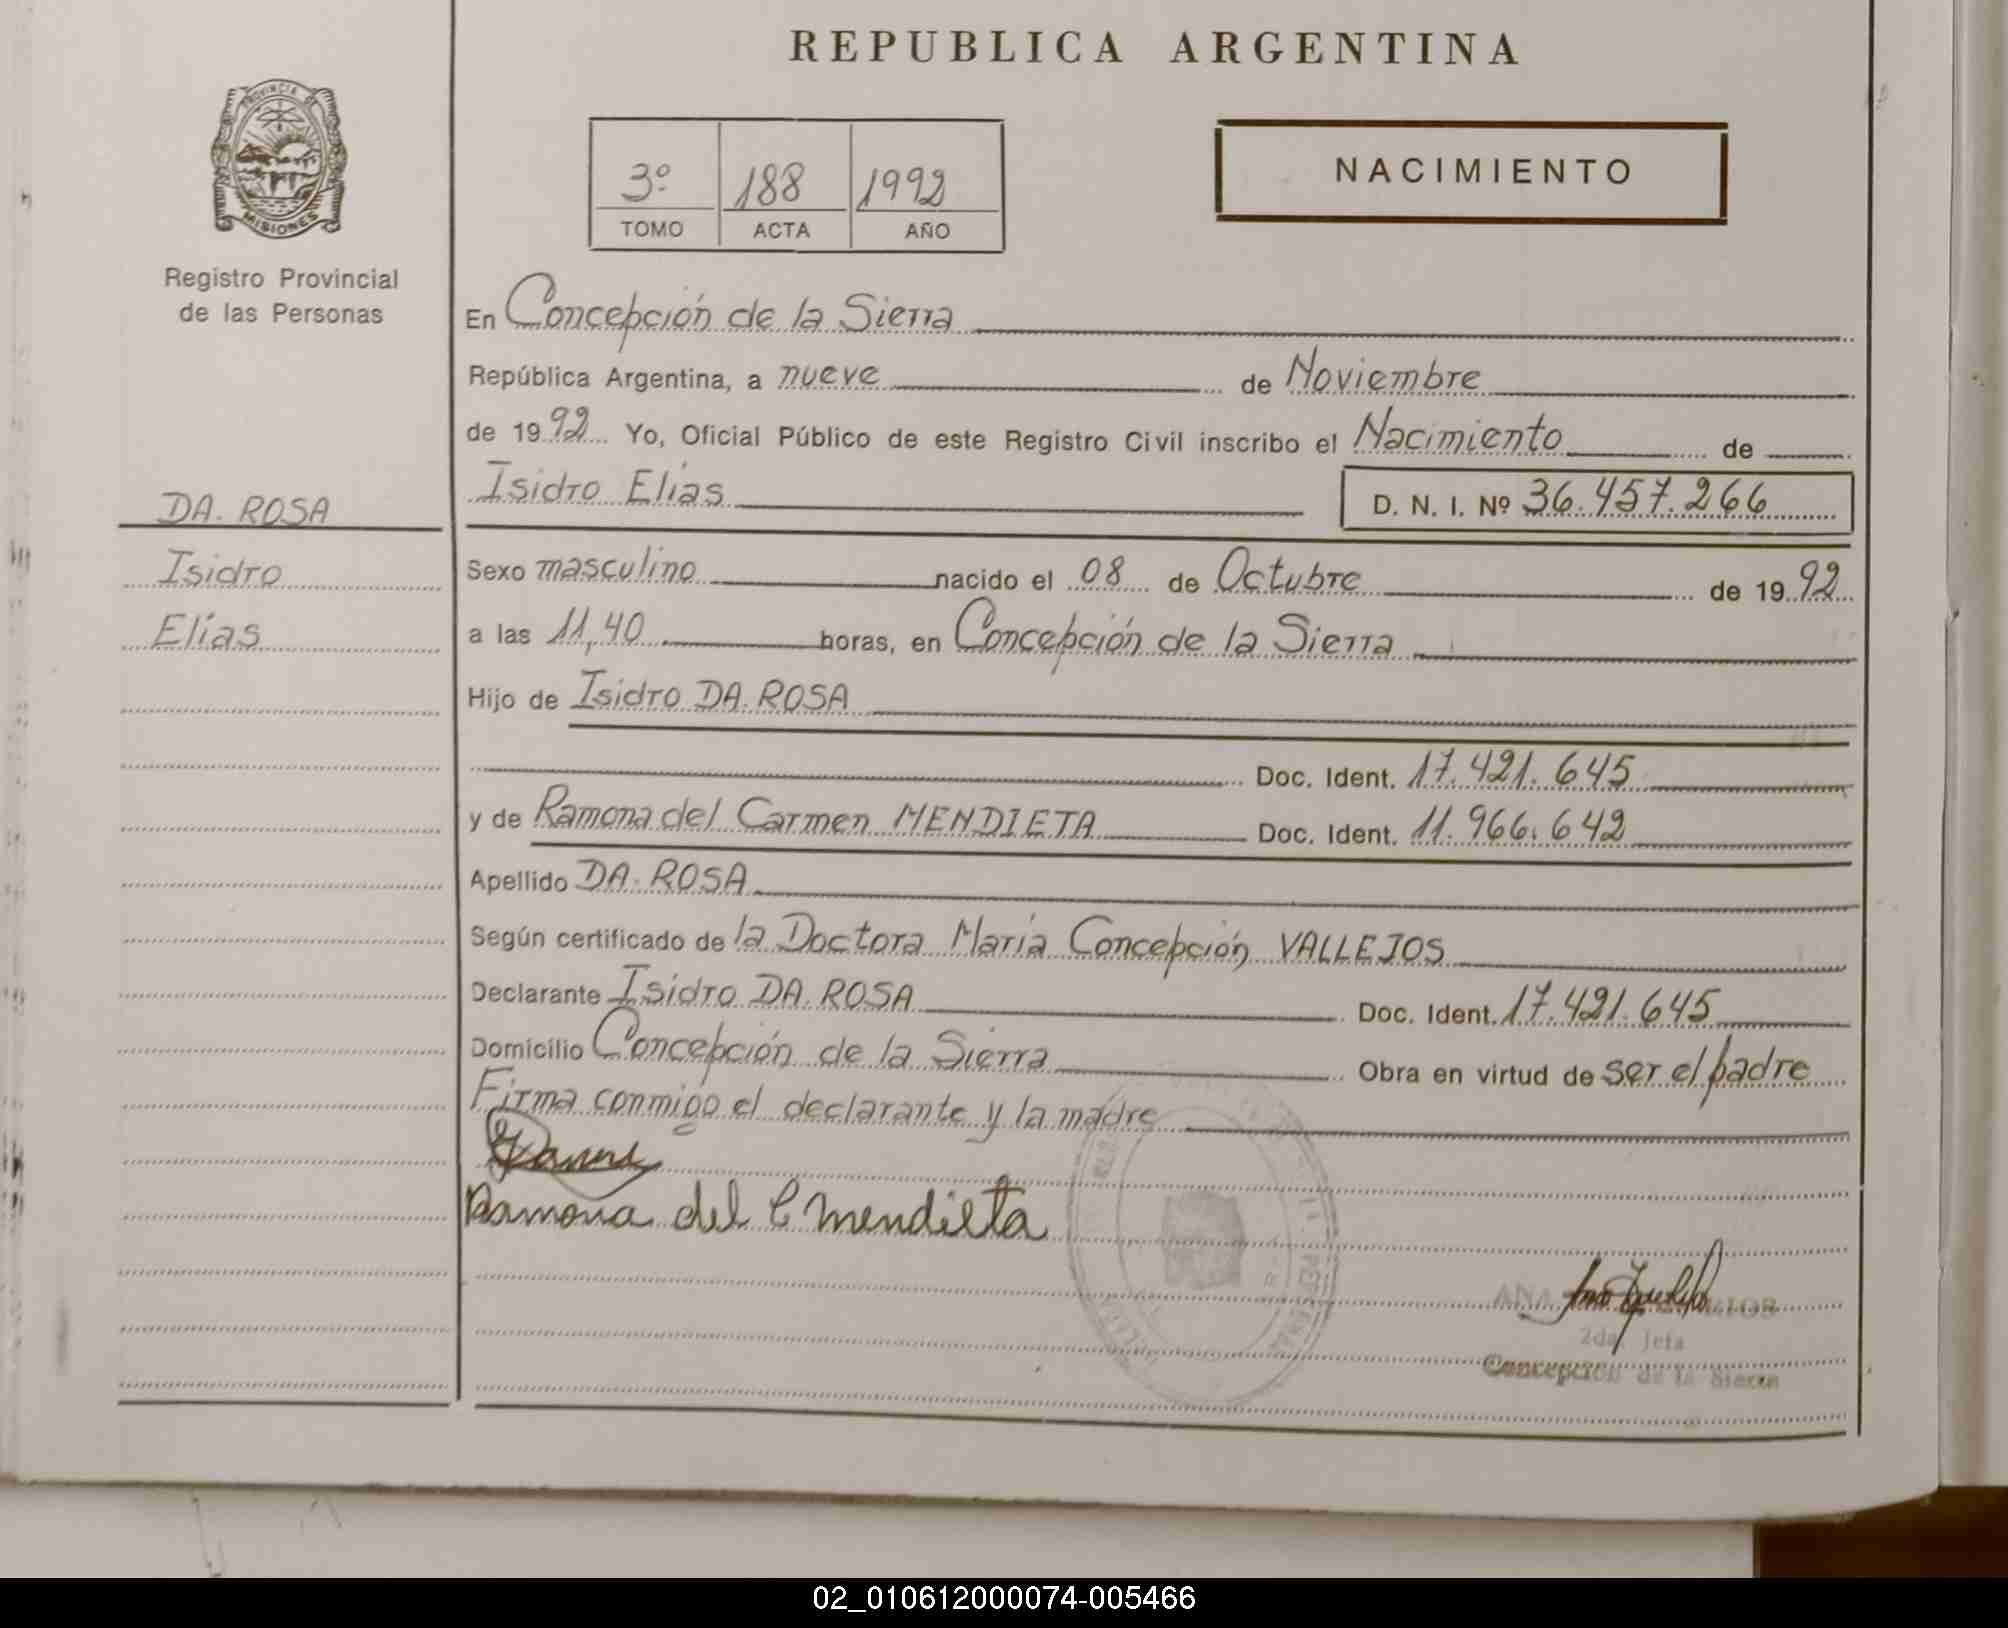 REPUBLICA ARGENTINA
PROVINCIA DE
MISIONES
Registro Provincial
de las Personas
3º 188 1992
TOMO ACTA AÑO
NACIMIENTO
En Concepción de la Sierra
República Argentina, a nueve de Noviembre
de 1992 Yo, Oficial Público de este Registro Civil inscribo el Nacimiento de
Isidro Elias D. N. I. Nº 36.457.266
DA. ROSA
Isidro
Elias
Sexo masculino nacido el 08 de Octubre de 1992
a las 11,40 horas, en Concepción de la Sierra
Hijo de Isidro DA. ROSA
Doc. Ident. 17.421.645
y de Ramona del Carmen MENDIETA Doc. Ident. 11.966.642
Apellido DA. ROSA
Según certificado de la Doctora Maria Concepción VALLEJOS
Declarante Isidro DA. ROSA Doc. Ident. 17.421.645
Domicilio Concepción de la Sierra Obra en virtud de ser el padre
Firma conmigo el declarante y la madre
Ramona del C Mendieta
ANA
2da. Jefa
Concepcion de la Sierra
02_010612000074-005466